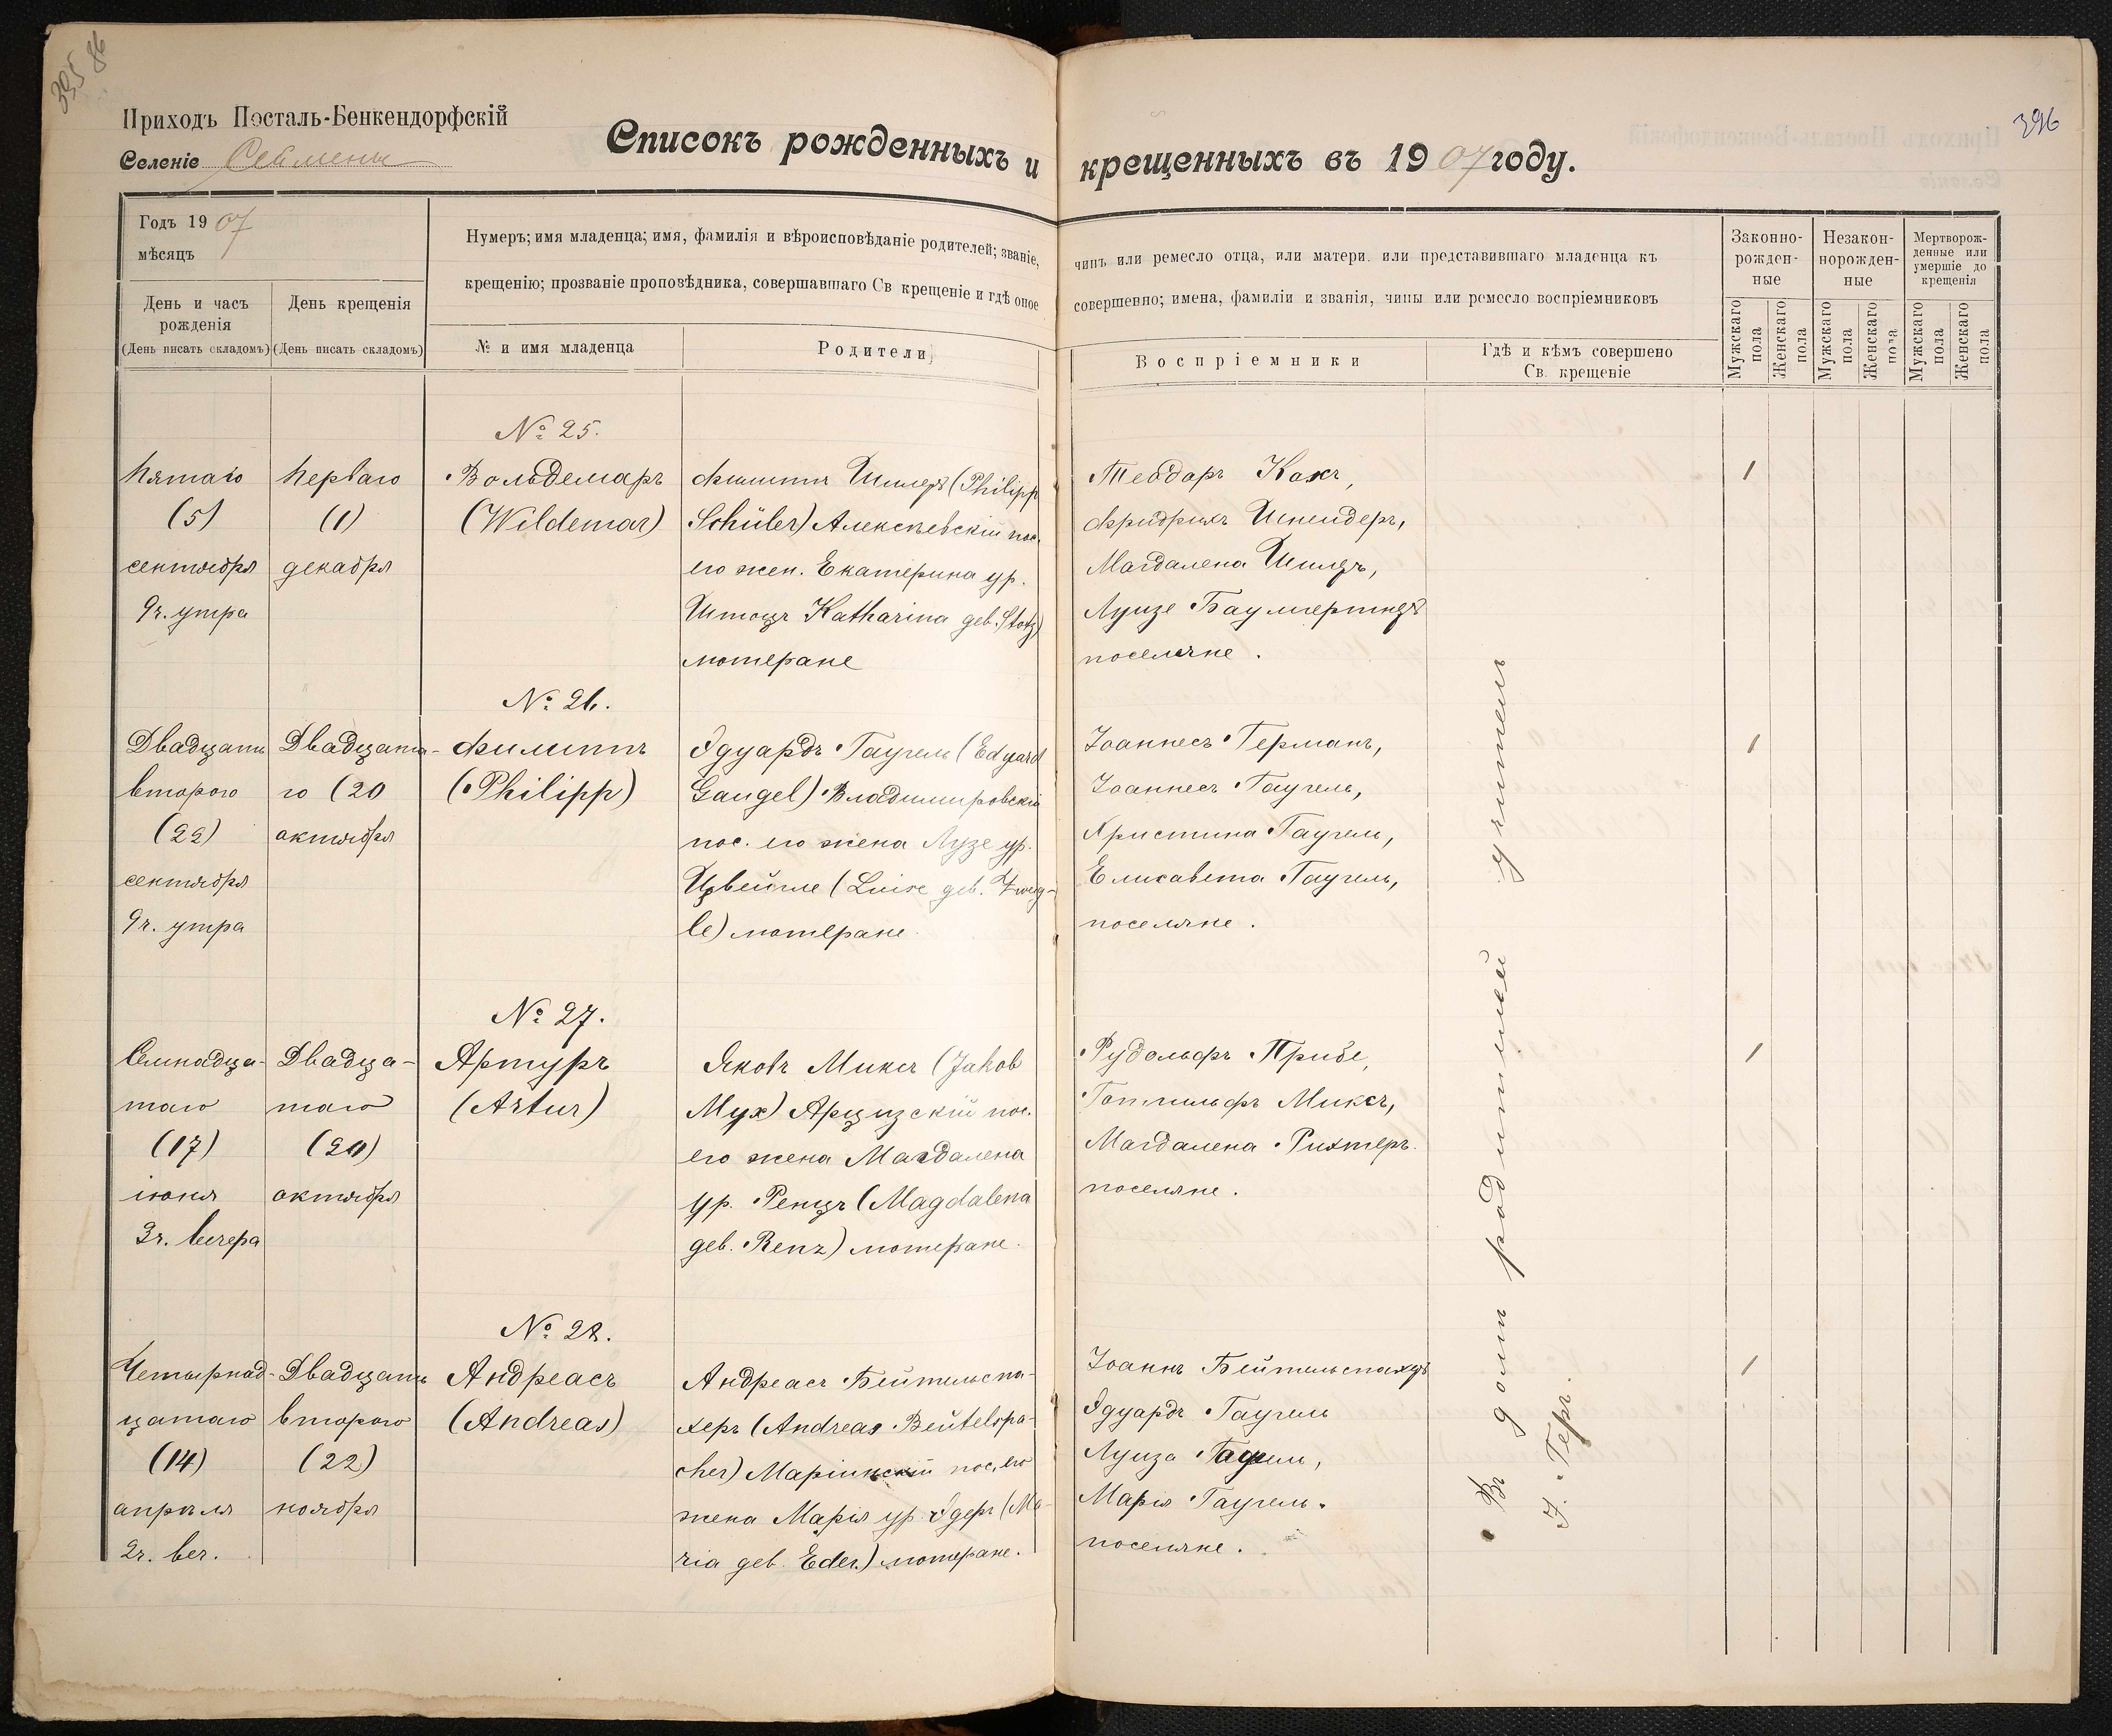 395 86
396
Приходъ Посталь-Бенкендорфскій
Селеніе Сеймены
Списокъ рожденныхъ и крещенныхъ въ 1907 году.
Годъ 1907
мѣсяцъ
День и часъ
рожденія
(День писать складомъ)
День крещенія
(День писать складомъ)
Нумеръ; имя младенца; имя, фамилія и вѣроисповѣданіе родителей; званіе, чинъ или ремесло отца, или матери. или представившаго младенца къ
крещенію; прозваніе проповѣдника, совершавшаго Св крещеніе и гдѣ оное совершенно; имена, фамиліи и званія, чины или ремесло воспріемниковъ
№ и имя младенца
Родители
Воспріемники
Гдѣ и кѣмъ совершено
Св. крещеніе
Законно-
рожден-
ные
Незакон-
норожден-
ные
Мертворож-
денные или
умершіе до
крещенія
Мужскаго пола
Женскаго пола
Мужскаго пола
Женскаго пола
Мужскаго пола
Женскаго пола
№ 25.
Пятаго
(5)
сентября
9ч. утра
Перваго
(1)
декабря
Вольдемаръ
(Wildemar)
Филиппъ Шилеръ (Philipp
Schüler) Алексѣевскій пос.
его жен. Екатерина ур.
Штоцъ Katharina geb. Stotz)
лютеране
Теодоръ Кохъ,
Фридрихъ Шнейдеръ,
Магдалена Шилеръ,
Луизе Баумгертнеръ
поселяне.
1
№ 26.
Двадцать
второго
(22)
сентября
9ч. утра
Двадцата-
го (20
октября
Филиппъ
(Philipp)
Эдуардъ Гаугель (Eduard
Gaugel) Владимировскій
пос. его жена Лузе ур.
Цвейгле (Luise geb. Zweig-
le) лютеране
Іоаннесъ Германъ,
Іоаннесъ Гаугель,
Христина Гаугель,
Елисавета Гаугель,
поселяне.
1
№ 27.
Семнадца-
таго
(17)
іюня
3ч. вечера
Двадца-
таго
(20)
октября
Артуръ
(Artur)
Яковъ Миксъ (Jakob
Мух) Арцизскій пос.
его жена Магдалена
ур. Ренцъ (Magdalena
geb. Renz) лютеране.
Рудольфъ Прибе,
Готлильфъ Миксъ,
Магдалена Рихтеръ.
поселяне.
1
№ 28.
Четырнад-
цатаго
(14)
апрѣля
2ч. веч.
Двадцать
второго
(22)
ноября
Андреасъ
(Andreas)
Андреасъ Бейтельспа-
херъ (Andreas Beutelspa-
cher) Маріинскій пос, его
жена Марія ур. Эдеръ (Ma-
ria geb. Eder.) лютеране.
Іоаннъ Бейтельспахеръ
Эдуардъ Гаугель
Луиза Гаугель,
Марія Гаугель.
поселяне.
1
Въ домѣ родителей учитель
Гергъ.